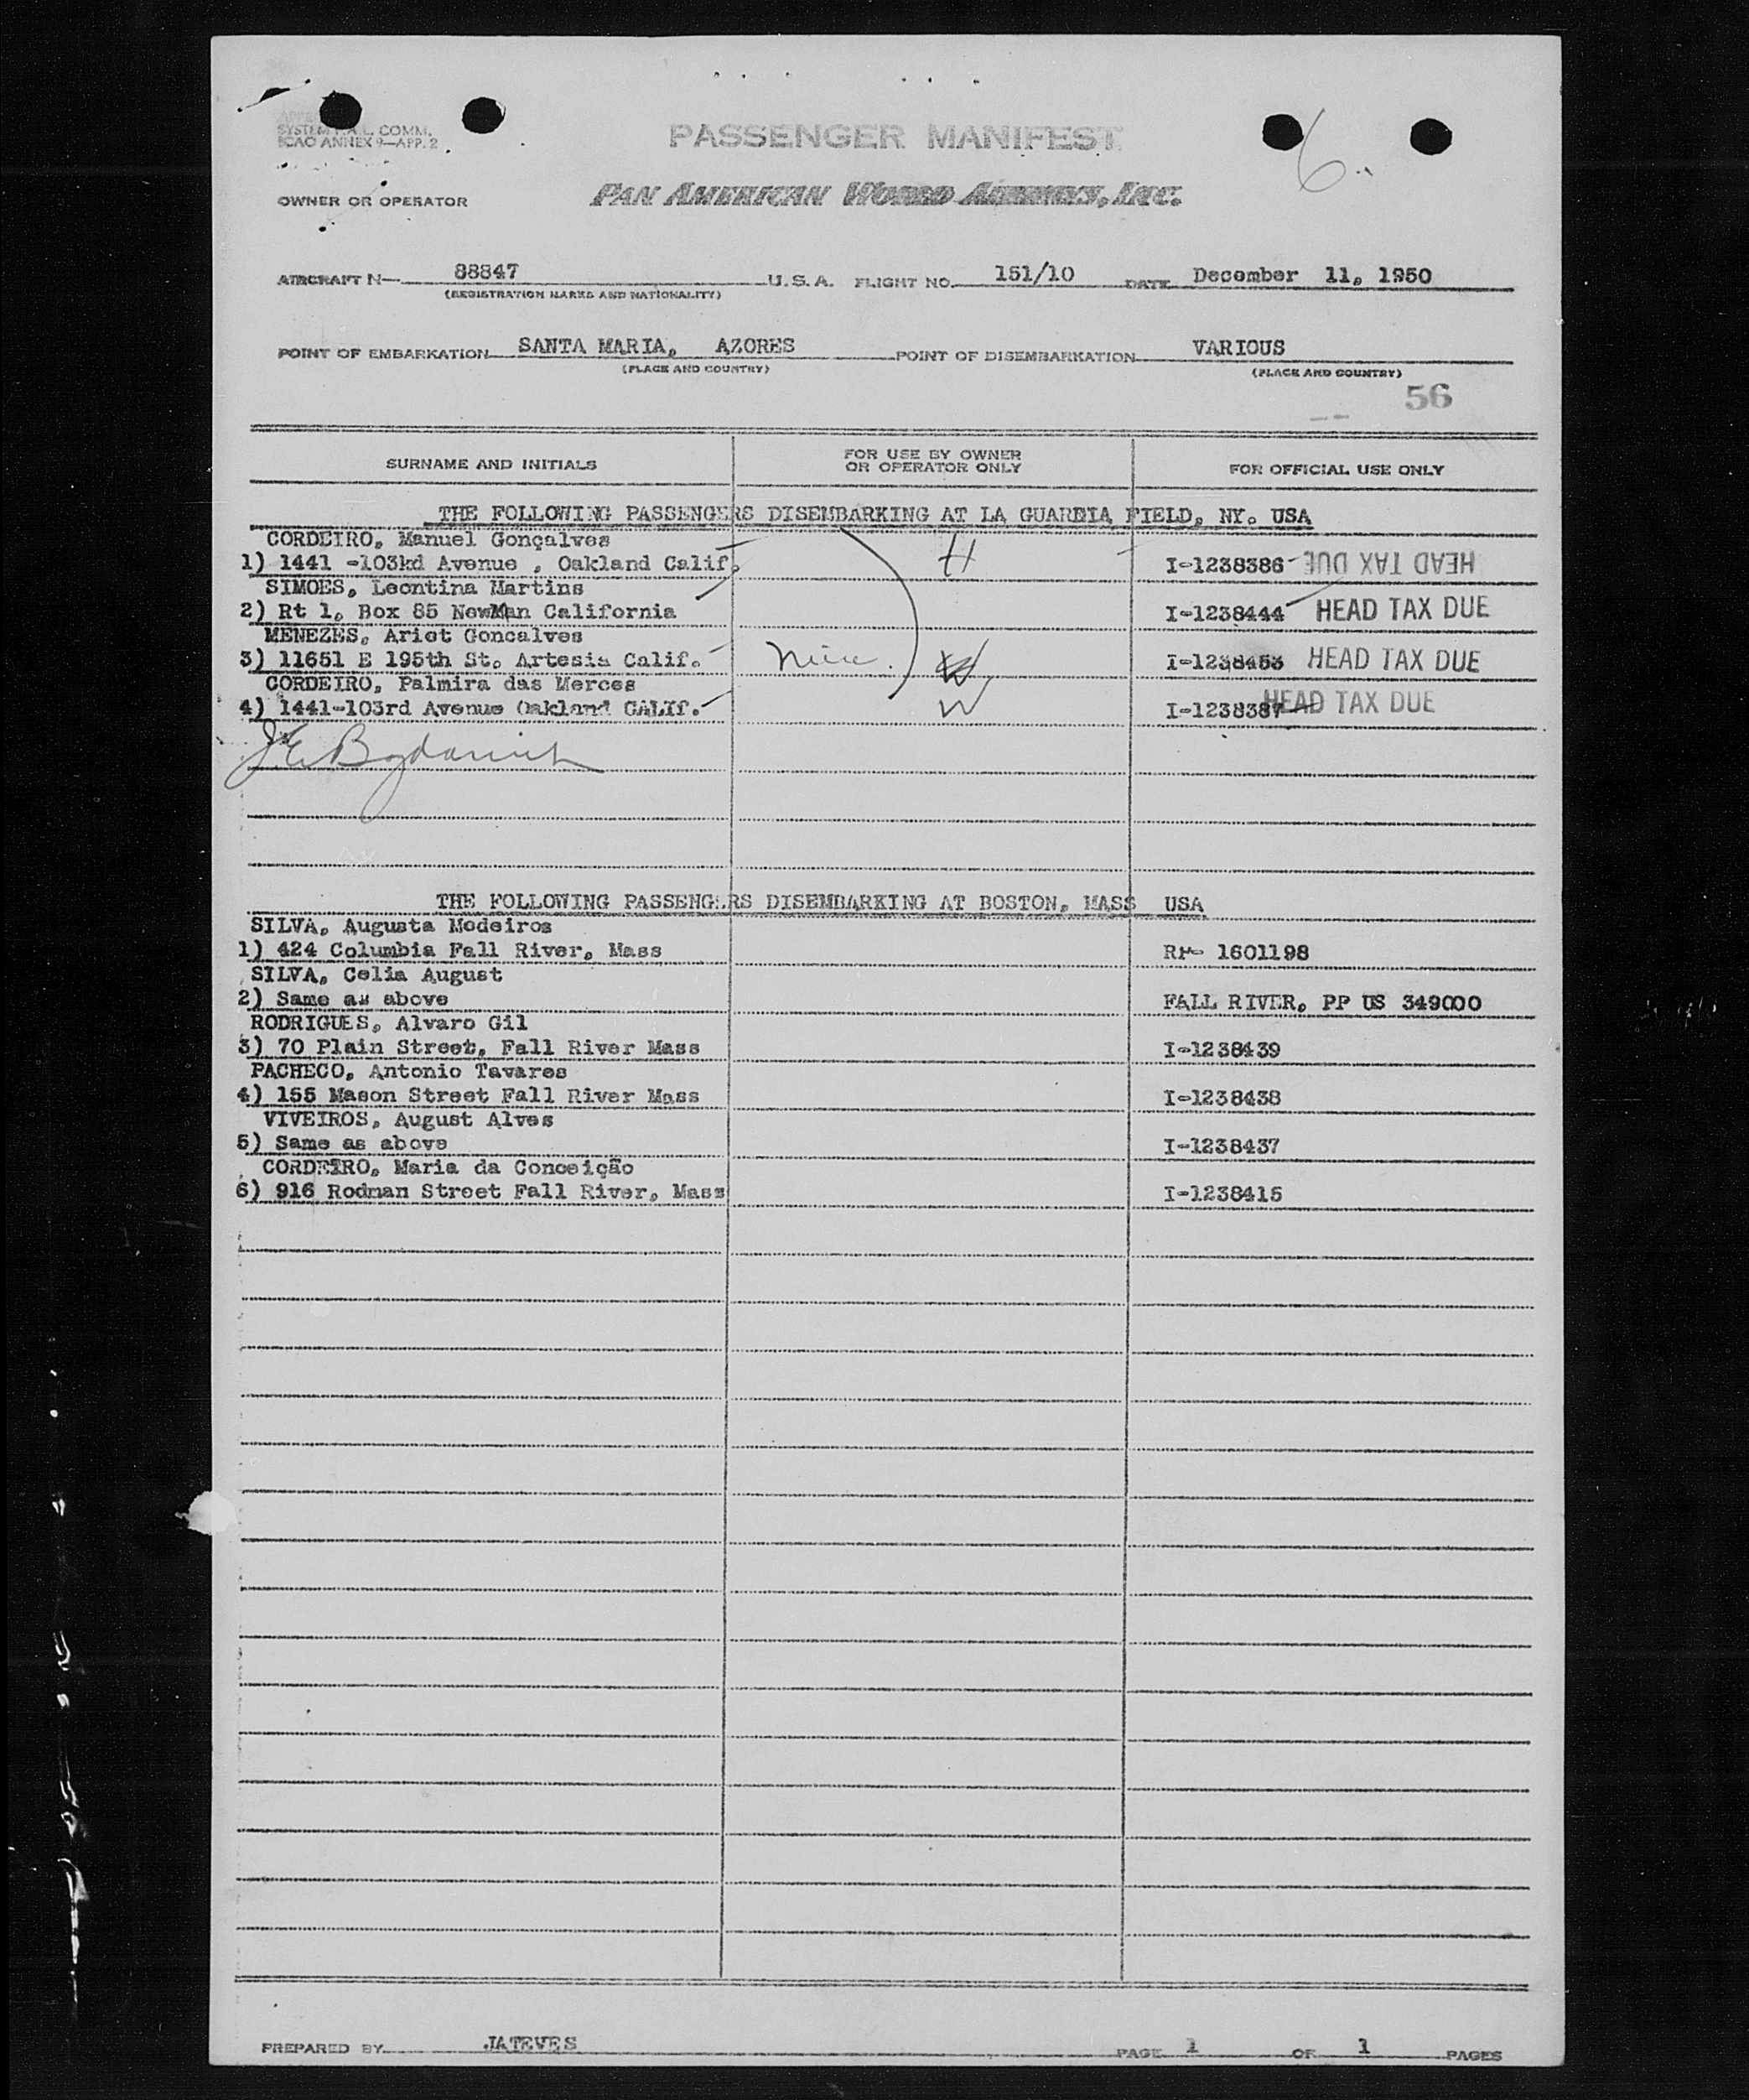 SYSTEM P.A.L. COMM.
ICAO ANNEX 9—APP. 2
PASSENGER MANIFEST
6
OWNER OR OPERATOR PAN AMERICAN WORLD AIRWAYS, INC.
AIRCRAFT N— 88847 U.S.A. FLIGHT NO. 151/10 DATE December 11, 1950
(REGISTRATION MARKS AND NATIONALITY)
POINT OF EMBARKATION SANTA MARIA, AZORES POINT OF DISEMBARKATION VARIOUS
(PLACE AND COUNTRY) (PLACE AND COUNTRY)
56
SURNAME AND INITIALS FOR USE BY OWNER OR OPERATOR ONLY FOR OFFICIAL USE ONLY
THE FOLLOWING PASSENGERS DISEMBARKING AT LA GUARDIA FIELD, NY. USA
CORDEIRO, Manuel Gonçalves
1) 1441 -103kd Avenue , Oakland Calif. H I-1238386 HEAD TAX DUE
SIMOES, Leontina Martins
2) Rt 1, Box 85 NewMan California I-1238444 HEAD TAX DUE
MENEZES, Ariet Goncalves
3) 11651 E 195th St. Artesia Calif. W I-1238453 HEAD TAX DUE
CORDEIRO, Palmira das Merces
4) 1441-103rd Avenue Oakland CALIf. W I-1238387 HEAD TAX DUE
J E Bogdanich
THE FOLLOWING PASSENGERS DISEMBARKING AT BOSTON, MASS USA
SILVA, Augusta Modeiros
1) 424 Columbia Fall River, Mass RP- 1601198
SILVA, Celia August
2) Same as above FALL RIVER, PP US 349000
RODRIGUES, Alvaro Gil
3) 70 Plain Street, Fall River Mass I-1238439
PACHECO, Antonio Tavares
4) 155 Mason Street Fall River Mass I-1238438
VIVEIROS, August Alves
5) Same as above I-1238437
CORDEIRO, Maria da Conceição
6) 916 Rodman Street Fall River, Mass I-1238415
PREPARED BY JATEVES PAGE 1 OF 1 PAGES